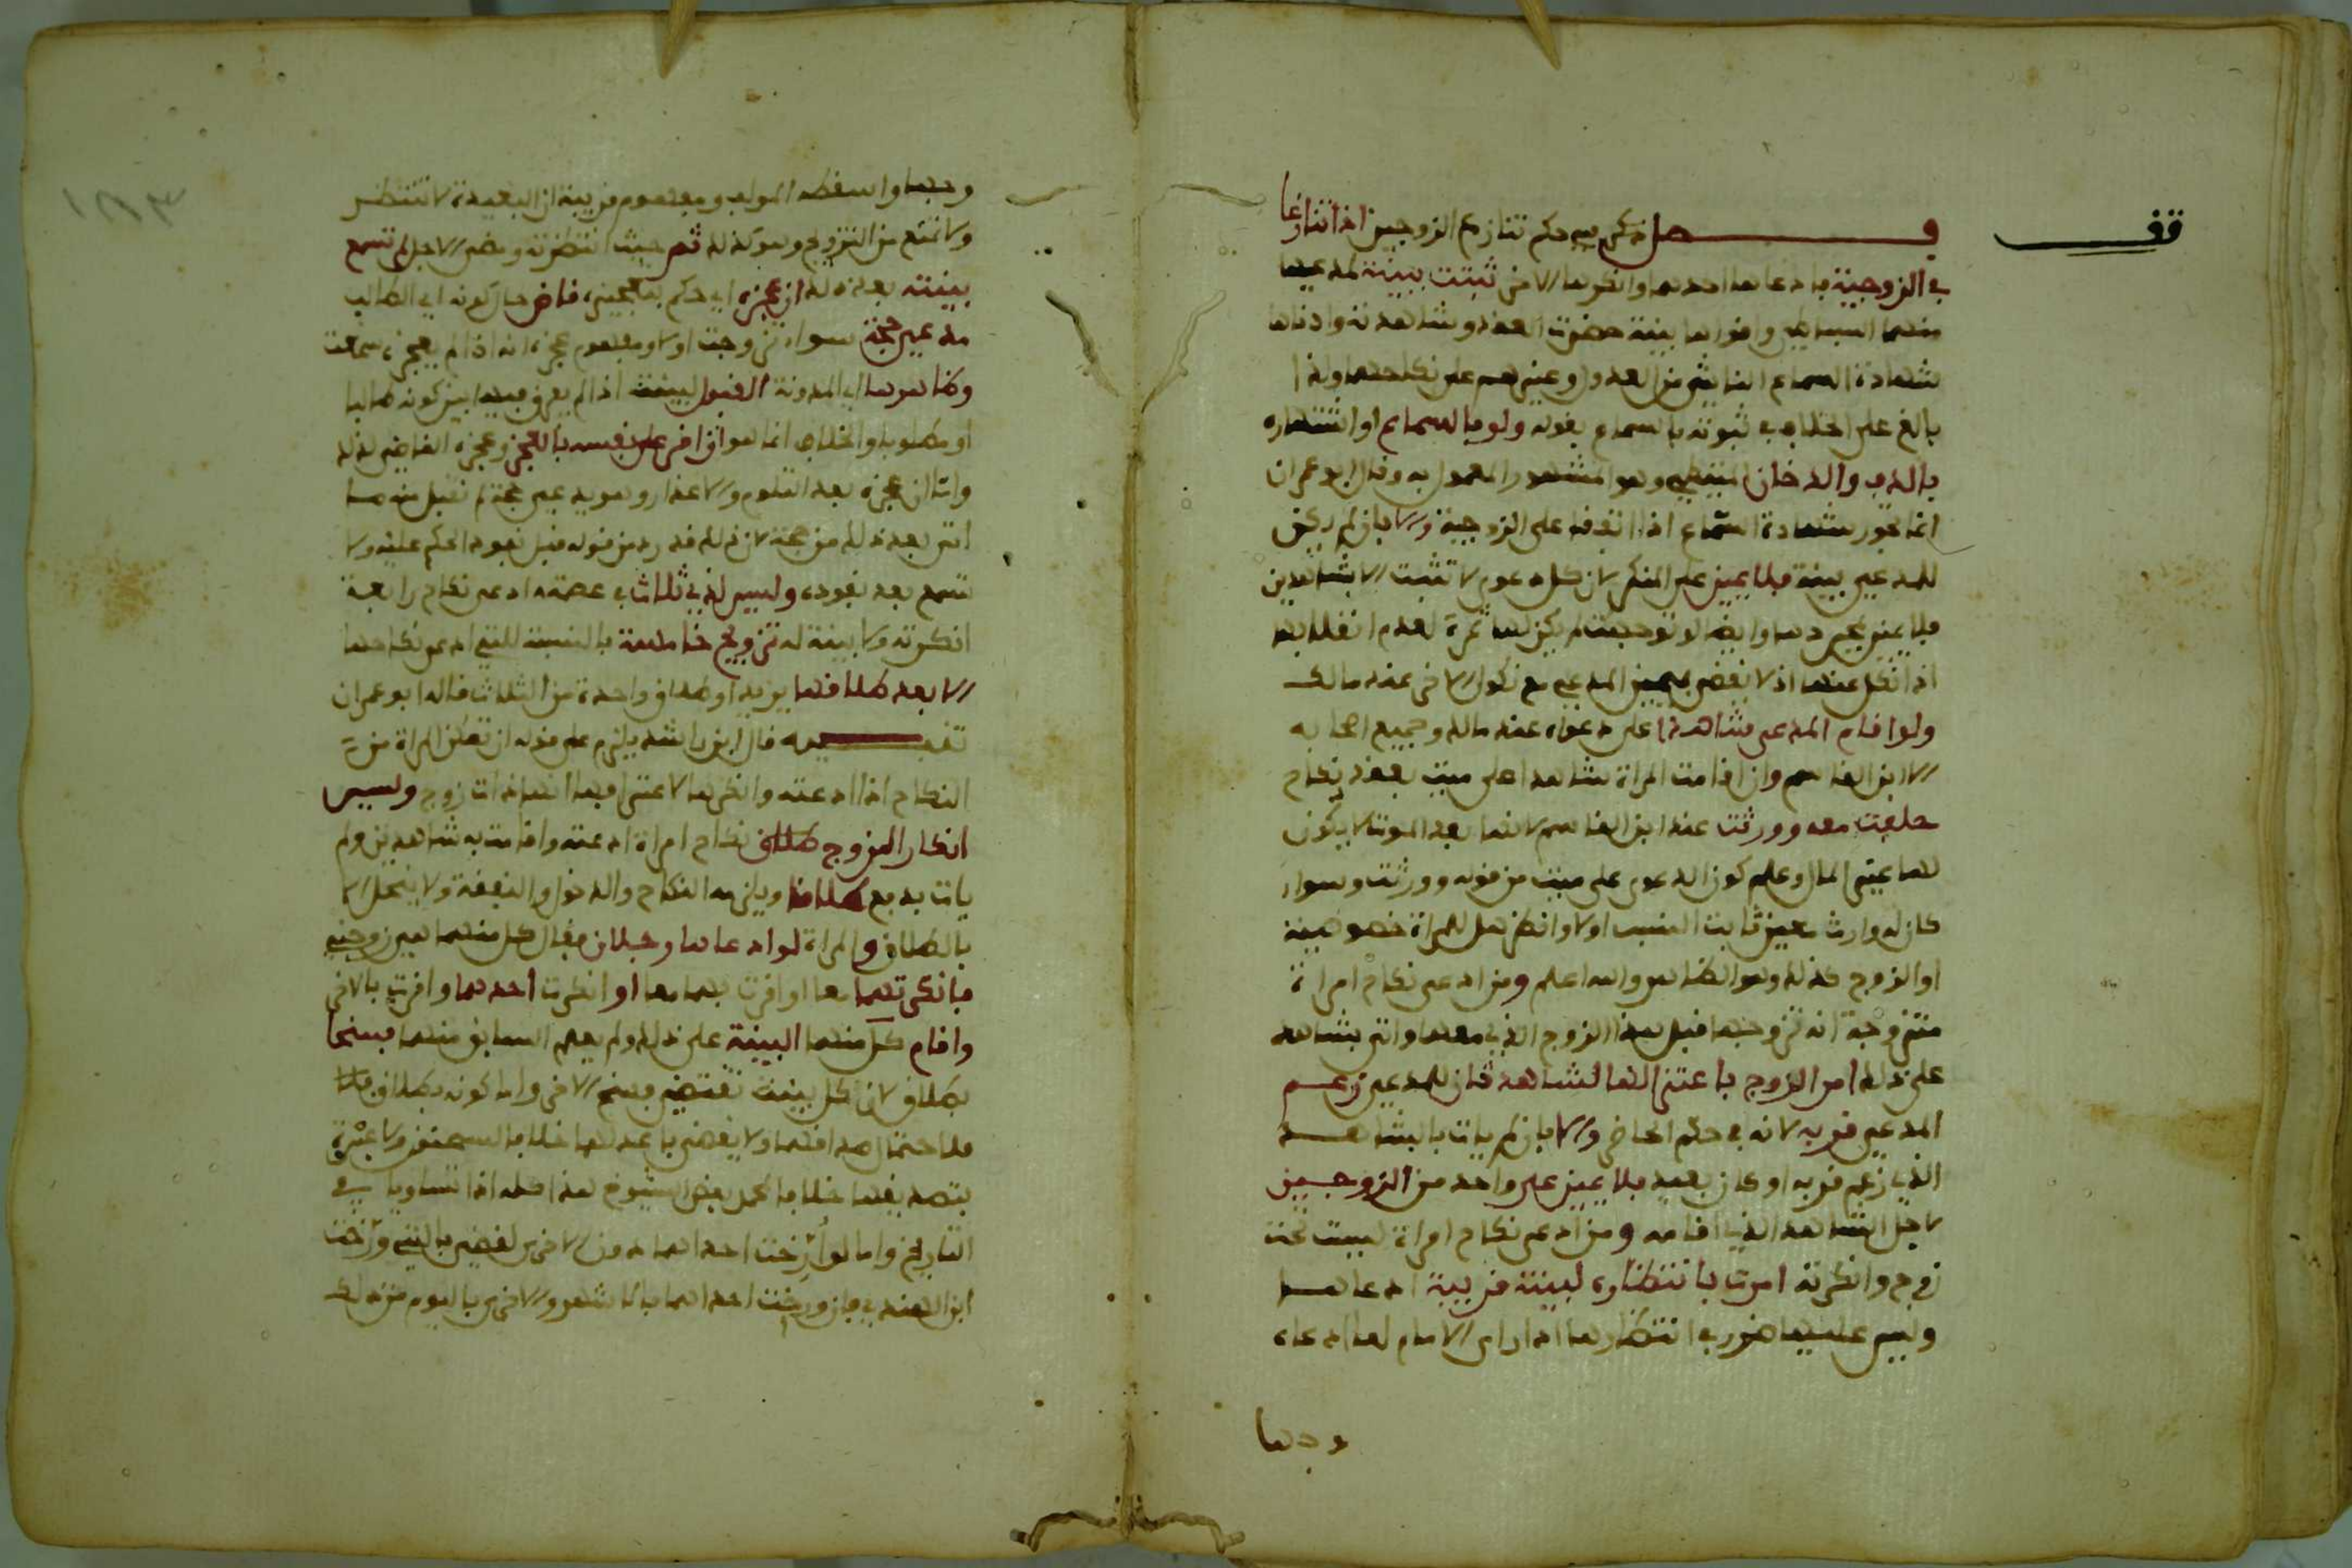 قف
فصل ذكر فيه حكم تنازع الزوجين اذا تنازعا
في الزوجية بادعاها احدهما وانكرها الاخر ثبتت ببينة لمدعيها
منهما
شهادة السماع الفاشي من العدول وغيرهم على نكاحهما ولذا
بالغ على الخلاف في ثبوته بالسماع بقوله ولو بالسماع او اشتهاره
بالدف والدخان وهو المشهور المعمول به وقال ابو عمران
انما تجوز شهادة السماع اذا اتفقا على الزوجية والا بان لم يكن
للمدعي بينة فلا يمين على المنكر لان كل دعوى لا تثبت الا بشاهدين
فلا يمين بمجردها وايضا لو توجهت لم يكن لها ثمرة لعدم انقلابها
اذا نكل عنها اذ لا يقضى بيمين المدعي مع نكول الاخر عند مالك
ولو اقام المدعي شاهدا على دعواه عند مالك وجميع اصحابه
الا ابن القاسم وان اقامت المراة شاهدا على ميت بعقد نكاح
حلفت معه وورثت عند ابن القاسم لانها بعد الموت لا يكون
لها غير المال وعلم كون الدعوى على ميت من قوله وورثت وسواء
كان له وارث معين ثابت النسب او لا وانظر هل للمراة خصوصية
او الزوج كذلك وهو الظاهر والله اعلم ومن ادعى نكاح امراة
متزوجة انه تزوجها قبل هذا الزوج الذي معها واتى بشاهد
على ذلك امر الزوج باعتزالها لشاهد ثان للمدعي زعم
المدعي قربه لانه في حكم الحاضر والا بان لم يات بالشاهد
الذي زعم قربه او كان بعيد فلا يمين على واحد من الزوجين
لاجل الشاهد الذي اقامه ومن ادعى نكاح امراة ليست تحت
زوج وانكرته امرت بانتظاره لبينة قريبة ادعاها
وليس عليها ضرر في انتظارها اذا راى الامام لها ادعاء
وجها
وجها واسقطه المولف ومفهوم قريبة ان البعيدة لا تنتظر
ولا تمنع من التزويج وهو كذلك ثم حيث انتظرته ومضى الاجل لم تسمع
بينته بعد ذلك ان عجزه اي حكم بتعجيزه قاض حال كونه اي الطالب
مدعي حجة سواء تزوجت او لا ومفهوم عجزه انه اذا لم يعجزه سمعت
وظاهرها اي المدونة القبول لبينته اذا لم يفرق فيها بين كونه طالبا
او مطلوبا والخلاف انما هو ان اقر على نفسه بالعجز وعجزه القاضي لذلك
واما ان عجزه بعد التلوم والاعذار وهو يدعي حجة لم تقبل منه ما
اتى بعد ذلك من حجة لان ذلك قد رد من قوله قبل نفوذ الحكم عليه ولا
تسمع بعد نفوذه وليس لذي ثلاث في عصمته ادعى نكاح رابعة
انكرته ولا بينة له تزويج خامسة بالنسبة للتي ادعى نكاحها
الا بعد طلاقها يريد او طلاق واحدة من الثلاث قاله ابو عمران
تنبيه قال ابن راشد يلزم على قوله ان تمكن المراة من
النكاح اذا ادعته وانكرها لاعترافها انها ذات زوج وليس
انكار الزوج طلاق نكاح امراة ادعته واقامت به شاهدين ولم
يات بدفع طلاقا ويلزمه النكاح والدخول والنفقة ولا ينحل الا
بالطلاق والمراة لو ادعاها رجلان فقال كل منهما هي زوجتي
فانكرتهما معا او اقرت بهما معا او انكرت احدهما واقرت بالاخر
واقام كل منهما البينة على ذلك ولم يعلم السابق منهما فسخا
بطلاق لان كل بينة تقتضي فسخ الاخر واما كونه بطلاق
فلاحتمال صدقهما ولا يقضى باعدلهما خلافا لسحنون ولا عبرة
بتصديقها خلافا لمحمد بعض الشيوخ هذا كله اذا تساويا في
التاريخ واما لو ارخت احداهما دون الاخرى لقضي بالتي ورخت
ابن الهندي فان ورخت احداهما بالشهر والاخرى باليوم من ذلك